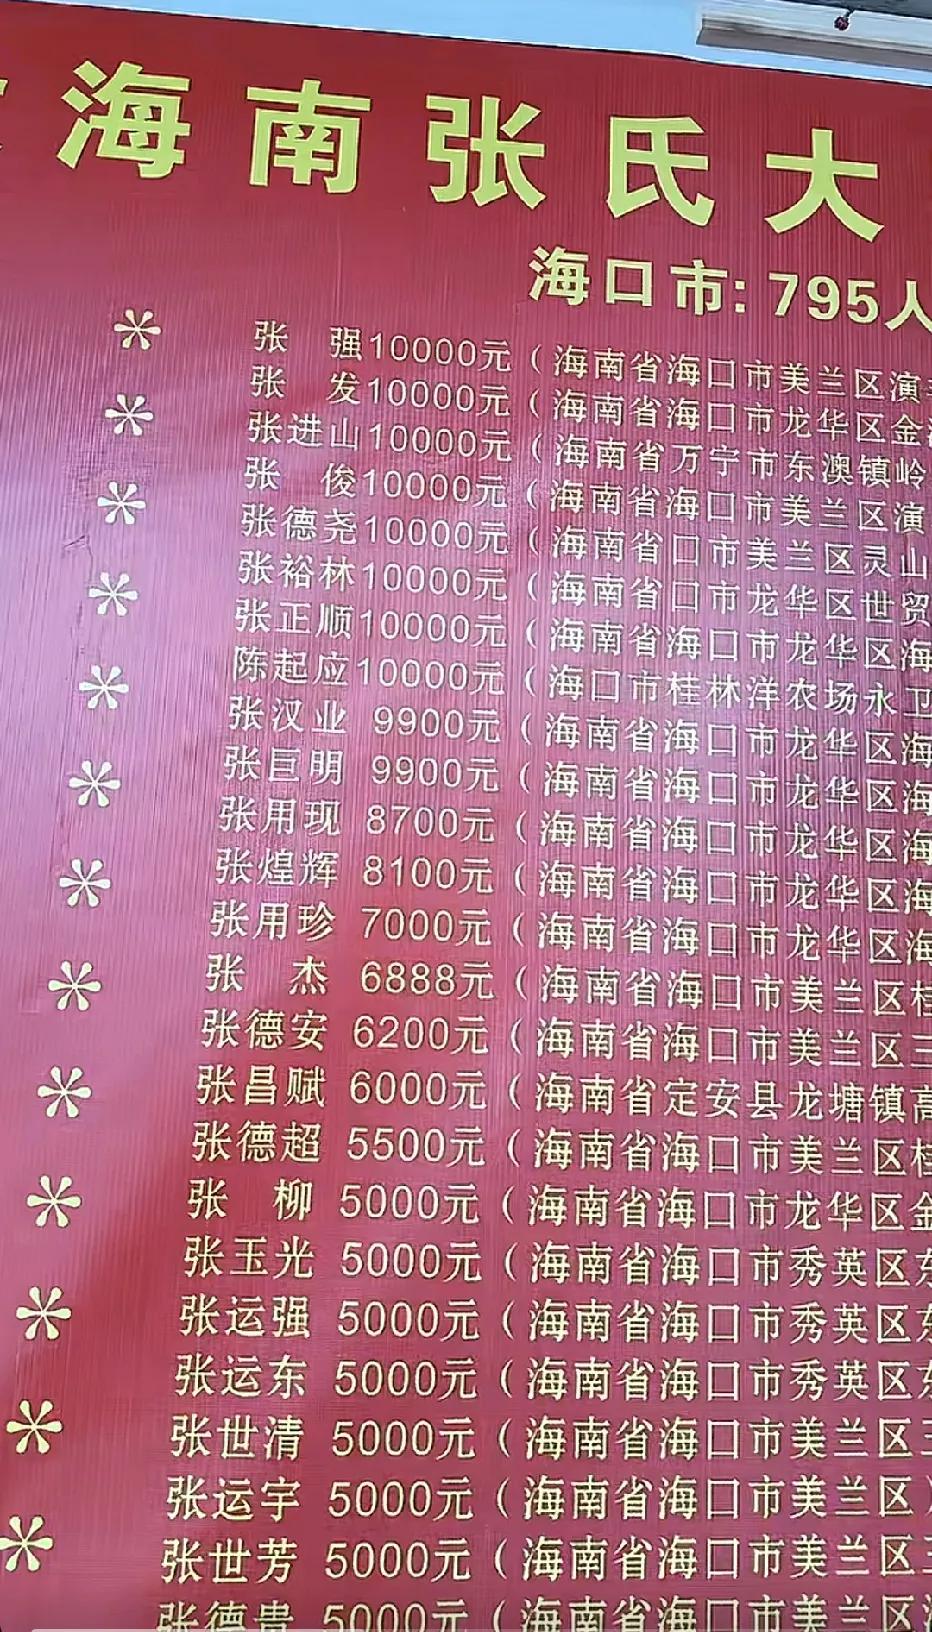 海南张氏大
海口市: 795人
张　强10000元（海南省海口市美兰区演
张　发10000元（海南省海口市龙华区金
张进山10000元（海南省万宁市东澳镇岭
张　俊10000元（海南省海口市美兰区演
张德尧10000元（海南省口市美兰区灵山
张裕林10000元（海南省口市龙华区世贸
张正顺10000元（海南省海口市龙华区海
陈起应10000元（海口市桂林洋农场永卫
张汉业 9900元（海南省海口市龙华区海
张巨明 9900元（海南省海口市龙华区海
张用现 8700元（海南省海口市龙华区海
张煌辉 8100元（海南省海口市龙华区海
张用珍 7000元（海南省海口市龙华区海
张　杰 6888元（海南省海口市美兰区桂
张德安 6200元（海南省海口市美兰区三
张昌赋 6000元（海南省定安县龙塘镇高
张德超 5500元（海南省海口市美兰区桂
张　柳 5000元（海南省海口市龙华区金
张玉光 5000元（海南省海口市秀英区东
张运强 5000元（海南省海口市秀英区东
张运东 5000元（海南省海口市秀英区东
张世清 5000元（海南省海口市美兰区三
张运宇 5000元（海南省海口市美兰区）
张世芳 5000元（海南省海口市美兰区三
张德贵 5000元（海南省海口市美兰区